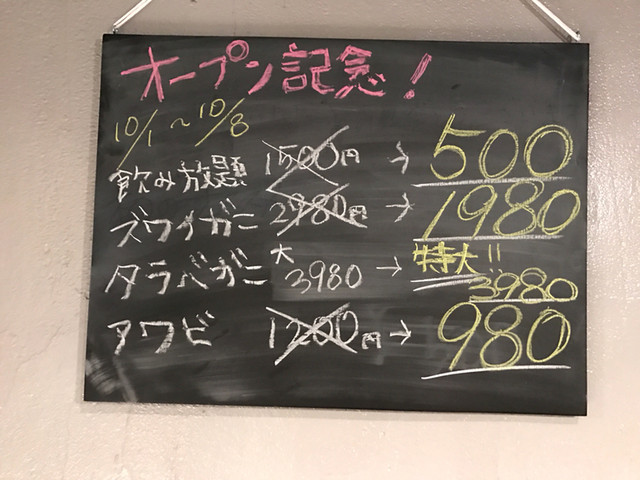 オープン記念!
10/1~10/8
飲み放題 1500円 → 500
ズワイガニ 2980円 → 1980
タラバガニ 大 3980 → 特大!! 3980
アワビ 1200円 → 980